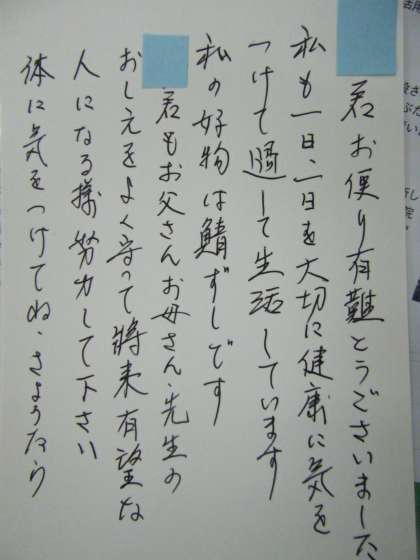 君お便り有難とうございました
私も一日、一日を大切に健康に気を
つけて過して生活しています
私の好物は鯖ずしです
君もお父さんお母さん、先生の
おしえをよく守って将来有望な
人になる様努力して下さい
体に気をつけてね、さようなら